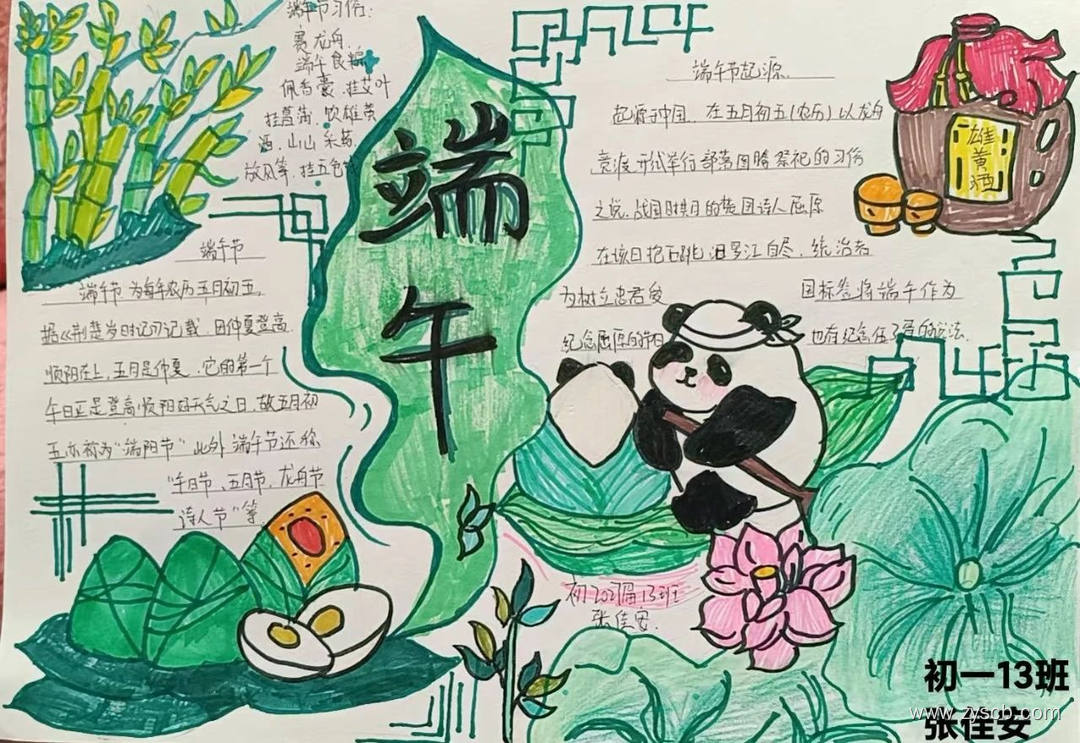 端午节习俗:
赛龙舟、
端午食粽
佩香囊、挂艾叶
挂菖蒲、饮雄黄
酒、山山采药、
放风筝、挂五色
端午
端午节
端午节为每年农历五月初五,
据《荆楚岁时记》记载,因仲夏登高
顺阳在上,五月是仲夏,它的第一个
午日正是登高顺阳好天气之日,故五月初
五亦称为"端阳节"此外端午节还称
"午日节、五月节、龙舟节
诗人节"等
端午节起源
起源于中国,在五月初五(农历)以龙舟
竞渡形式举行部落图腾祭祀的习俗
之说,战国时期的楚国诗人屈原
在该日抱石跳汨罗江自尽,统治者
为树立忠君爱国标签将端午作为
纪念屈原的节日 也有纪念伍子胥的说法.
雄黄酒
初2021届13班
张佳安
初一13班
张佳安
www.zyscb.com